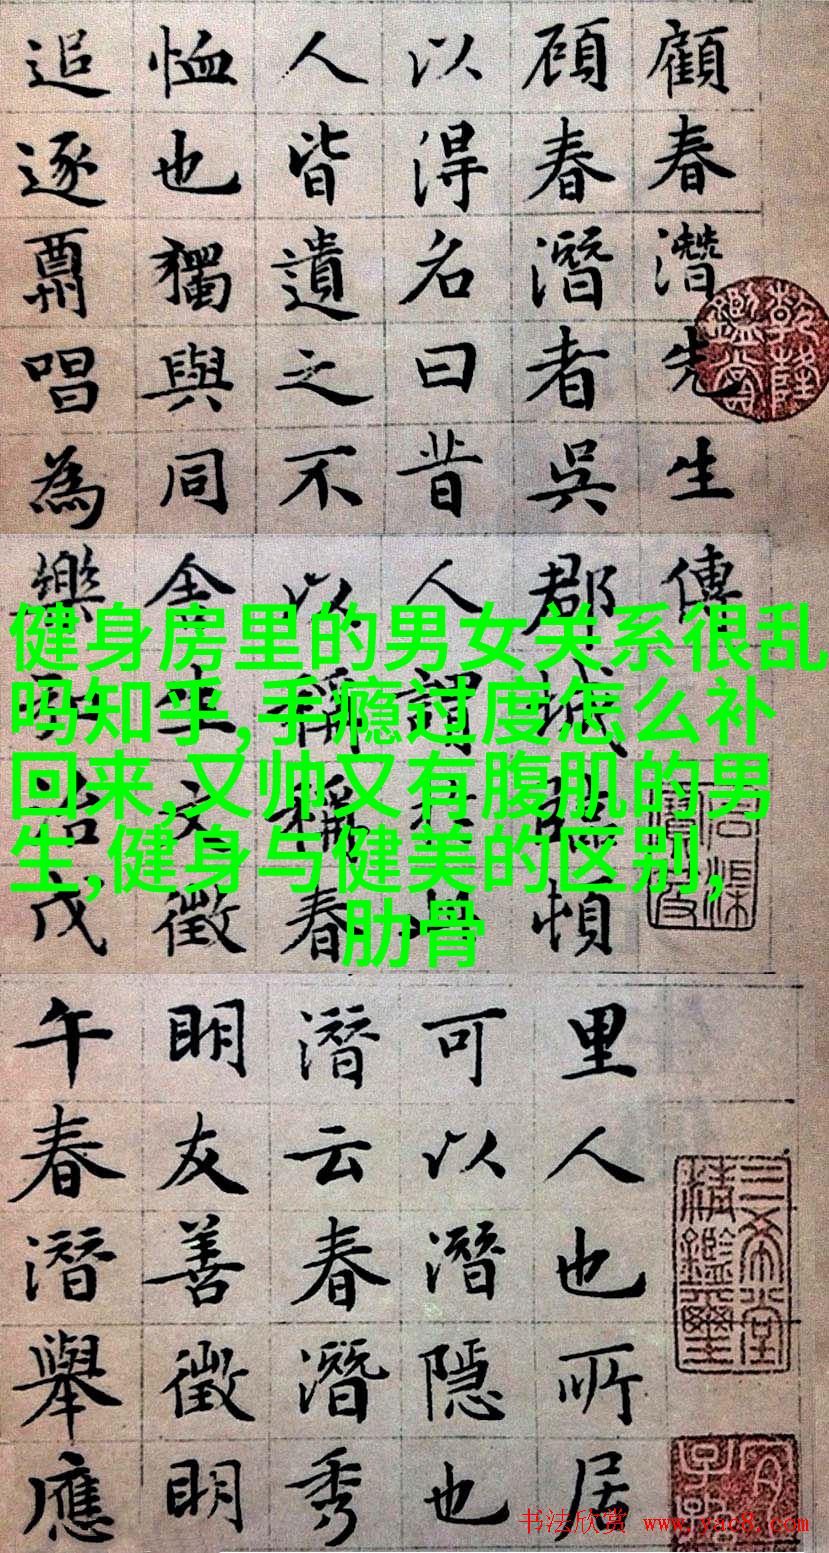 顧春潛先生傳
顧春潛者吳郡城頓里人也所居
以得名曰昔人謂可以潛隱也
人皆遺之不以稱稱春潛云春潛秀
恤也獨與同舍生文徵明友善徵明
追逐唱為樂治戊午春潛舉應
乾隆鑑賞
三希堂精鑑璽
健身房里的男女关系很乱
吗知乎,手瘾过度怎么补
回来,又帅又有腹肌的男
生,健身与健美的区别,
肋骨
书法欣赏 www.yac8.com